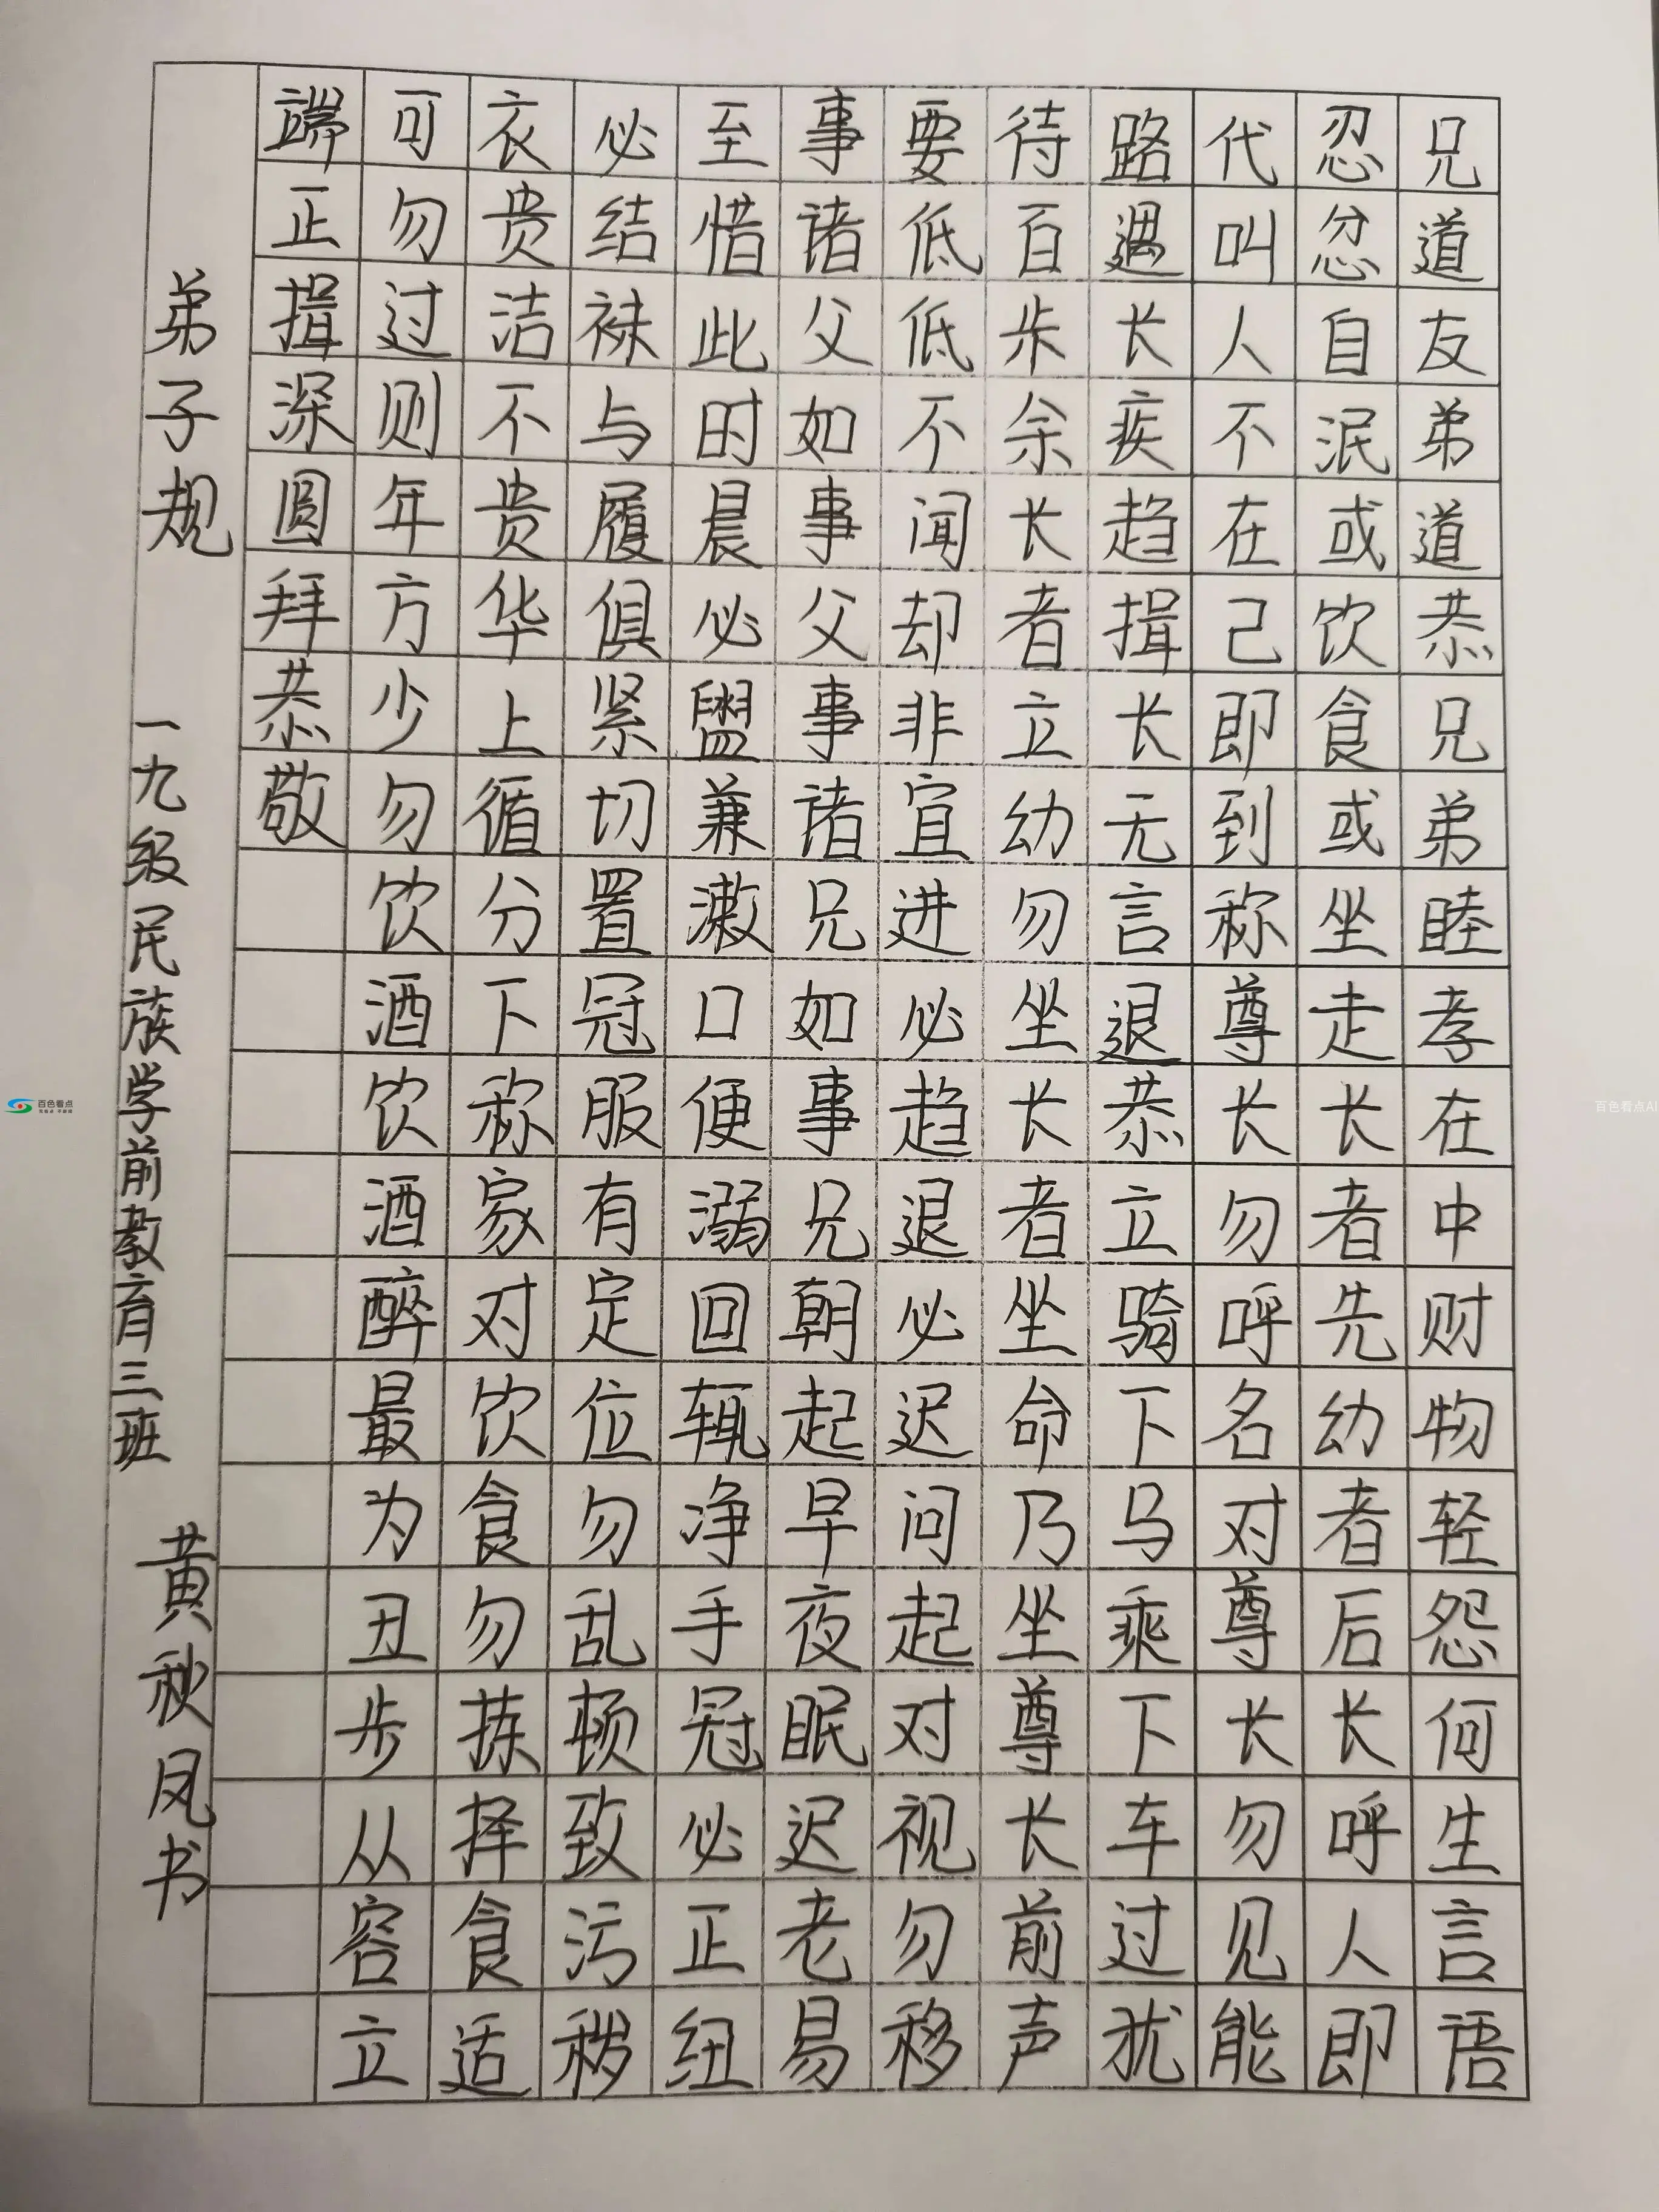 兄道友弟道恭兄弟睦孝在中财物轻怨何生言语
忍忿自泯或饮食或坐走长者先幼者后长呼人即
代叫人不在己即到称尊长勿呼名对尊长勿见能
路遇长疾趋揖长无言退恭立骑下马乘下车过犹
待百步余长者立幼勿坐长者坐命乃坐尊长前声
要低低不闻却非宜进必趋退必迟问起对视勿移
事诸父如事父事诸兄如事兄朝起早夜眠迟老易
至惜此时晨必盥兼漱口便溺回辄净手冠必正纽
必结袜与履俱紧切置冠服有定位勿乱顿致污秽
衣贵洁不贵华上循分下称家对饮食勿拣择食适
可勿过则年方少勿饮酒饮酒醉最为丑步从容立
端正揖深圆拜恭敬
弟子规 一九级民族学前教育三班 黄秋凤书
百色看点
百色看点AI